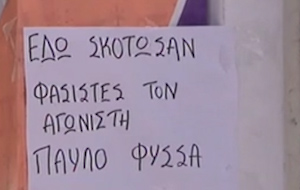 ΕΔΩ ΣΚΟΤΩΣΑΝ
ΦΑΣΙΣΤΕΣ ΤΟΝ
ΑΓΩΝΙΣΤΗ
ΠΑΥΛΟ ΦΥΣΣΑ